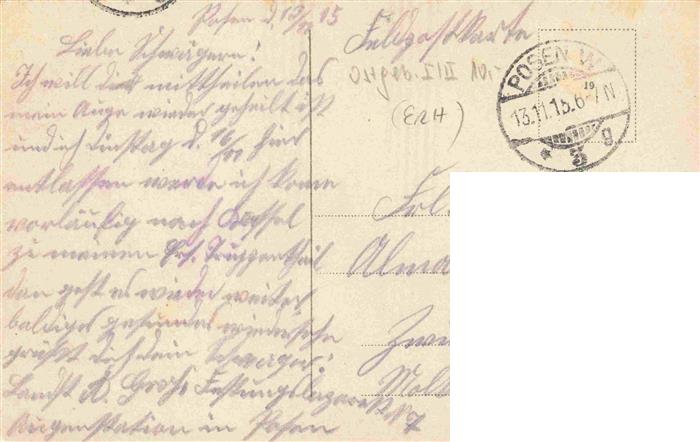 Posen d. 13/11 15
Liebe Schwägerin!
Ich will dir mittheilen das
mein Auge wieder geheilt ist
und ich dinstag d. 16/11 hier
entlassen werde ich kome
vorläufig nach Cassel
zu meinen Ers. Truppentheil
dan geht es wieder weiter
baldiges gesundes wiedersehn
grüßt dich dein Schwager
Landst Festungslazarett
Augenstation in Posen
Feldpostkarte
Ostgeb. I/III 10.-
(ERH)
POSEN W
13.11.15.6-7N
* 3 g